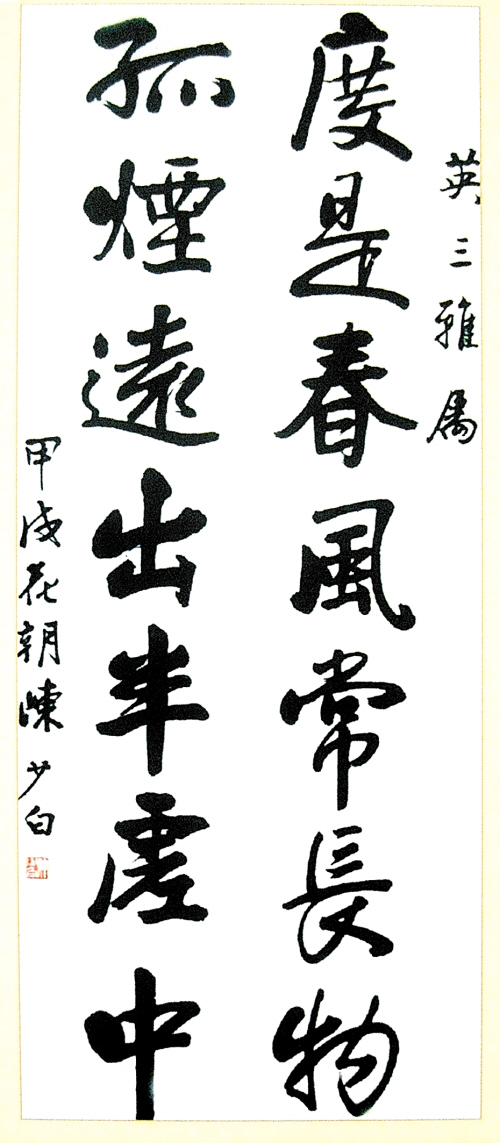 英三雅属
度是春風常長物
孤煙遠出半虚中
甲戌花朝陳少白